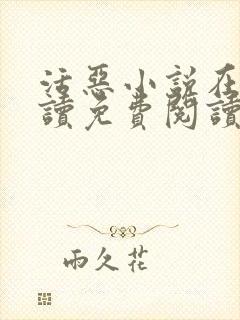 活惡小說在
讀免費閱讀
雨久花